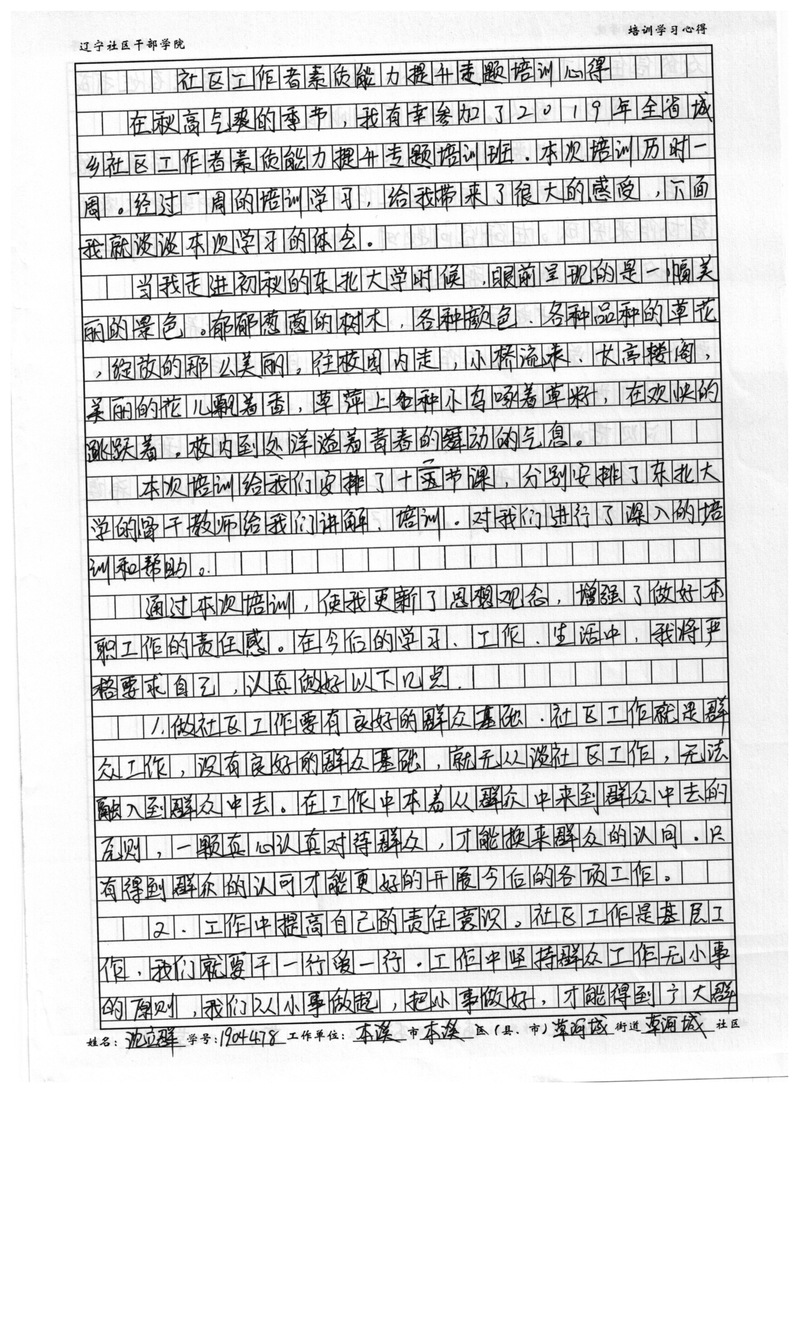 辽宁社区干部学院 培训学习心得
社区工作者素质能力提升专题培训心得
在秋高气爽的季节，我有幸参加了2019年全省城
乡社区工作者素质能力提升专题培训班．本次培训历时一
周。经过一周的培训学习，给我带来了很大的感受，下面
我就谈谈本次学习的体会。
当我走进初秋的东北大学时候，眼前呈现的是一幅美
丽的景色。郁郁葱葱的树木，各种颜色、各种品种的草花
，绽放的那么美丽。往校园内走，小桥流来、大高楼阁，
美丽的花儿飘着香，草萍上各种小鸟啄着草籽，在欢快的
跳跃着。校内到处洋溢着青春的舞动的气息。
本次培训给我们安排了十节课，分别安排了东北大
学的骨干教师给我们讲解、培训．对我们进行了深入的培
训和帮助。
通过本次培训，使我更新了思想观念，增强了做好本
职工作的责任感。在今后的学习、工作、生活中，我将严
格要求自己，认真做好以下几点．
1.做社区工作要有良好的群众基础．社区工作就是群
众工作，没有良好的群众基础，就无从谈社区工作，无法
融入到群众中去。在工作中本着从群众中来到群众中去的
原则，一颗真心认真对待群众，才能换来群众的认同．只
有得到群众的认可才能更好的开展今后的各项工作。
2．工作中提高自己的责任意识。社区工作是基层工
作．我们就要干一行爱一行．工作中坚持群众工作无小事
的原则，我们从小事做起，把小事做好，才能得到广大群
姓名：沈立群 学号：1904478 工作单位：本溪市本溪区（县、市）草河城街道草河城社区